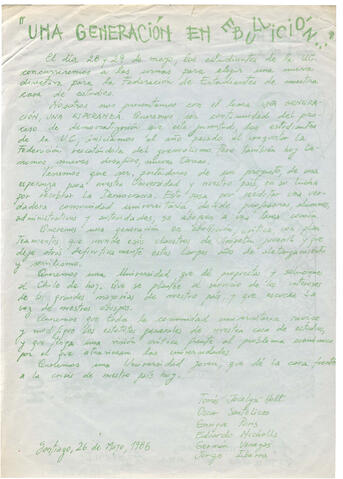 "UNA GENERACIÓN EN EBULLICIÓN..."
El día 28 y 29 de mayo, los estudiantes de la UC
concurriremos a las urnas para elegir una nueva
directiva para la Federación de Estudiantes de nuestra
casa de estudios.
Nosotros nos presentamos con el lema UNA GENERA-
CIÓN, UNA ESPERANZA. Queremos ser continuidad del pro-
ceso de democratización que esta juventud, los estudiantes
de la UC, iniciamos el año pasado al conquistar la
Federación rescatándola del gremialismo. Pero también hoy te-
nemos nuevos desafíos, nuevas tareas.
Tenemos que ser portadores de un proyecto, de una
esperanza para nuestra Universidad y nuestro país en su lucha
por recobrar la Democracia. Esto pasa por
verdadera comunidad universitaria donde profesores, alumnos,
administrativos y autoridades, se aboquen a una tarea común.
Queremos una generación en ebullición, crítica
que inunde estos claustros de ímpetu juvenil y que
deje atrás definitivamente estos largos años de aletargamiento
y
Queremos una Universidad que se proyecte y
el Chile de hoy. Que se plantee al servicio de los intereses
de las grandes mayorías de nuestro país y que escuche la
voz de nuestros obispos.
Queremos que toda la comunidad universitaria revise
y modifique los estatutos generales de nuestra casa de estudios,
y que tenga una visión crítica frente al problema económico
por el que atraviesan las universidades.
Queremos una Universidad joven, que dé la cara frente
a la crisis de nuestro país hoy.
Tomás Jocelyn-Holt
Oscar Santelices
Enrique Paris
Eduardo Nicholls
Germán Venegas
Jorge Ibarra
Santiago, 26 de Mayo, 1986